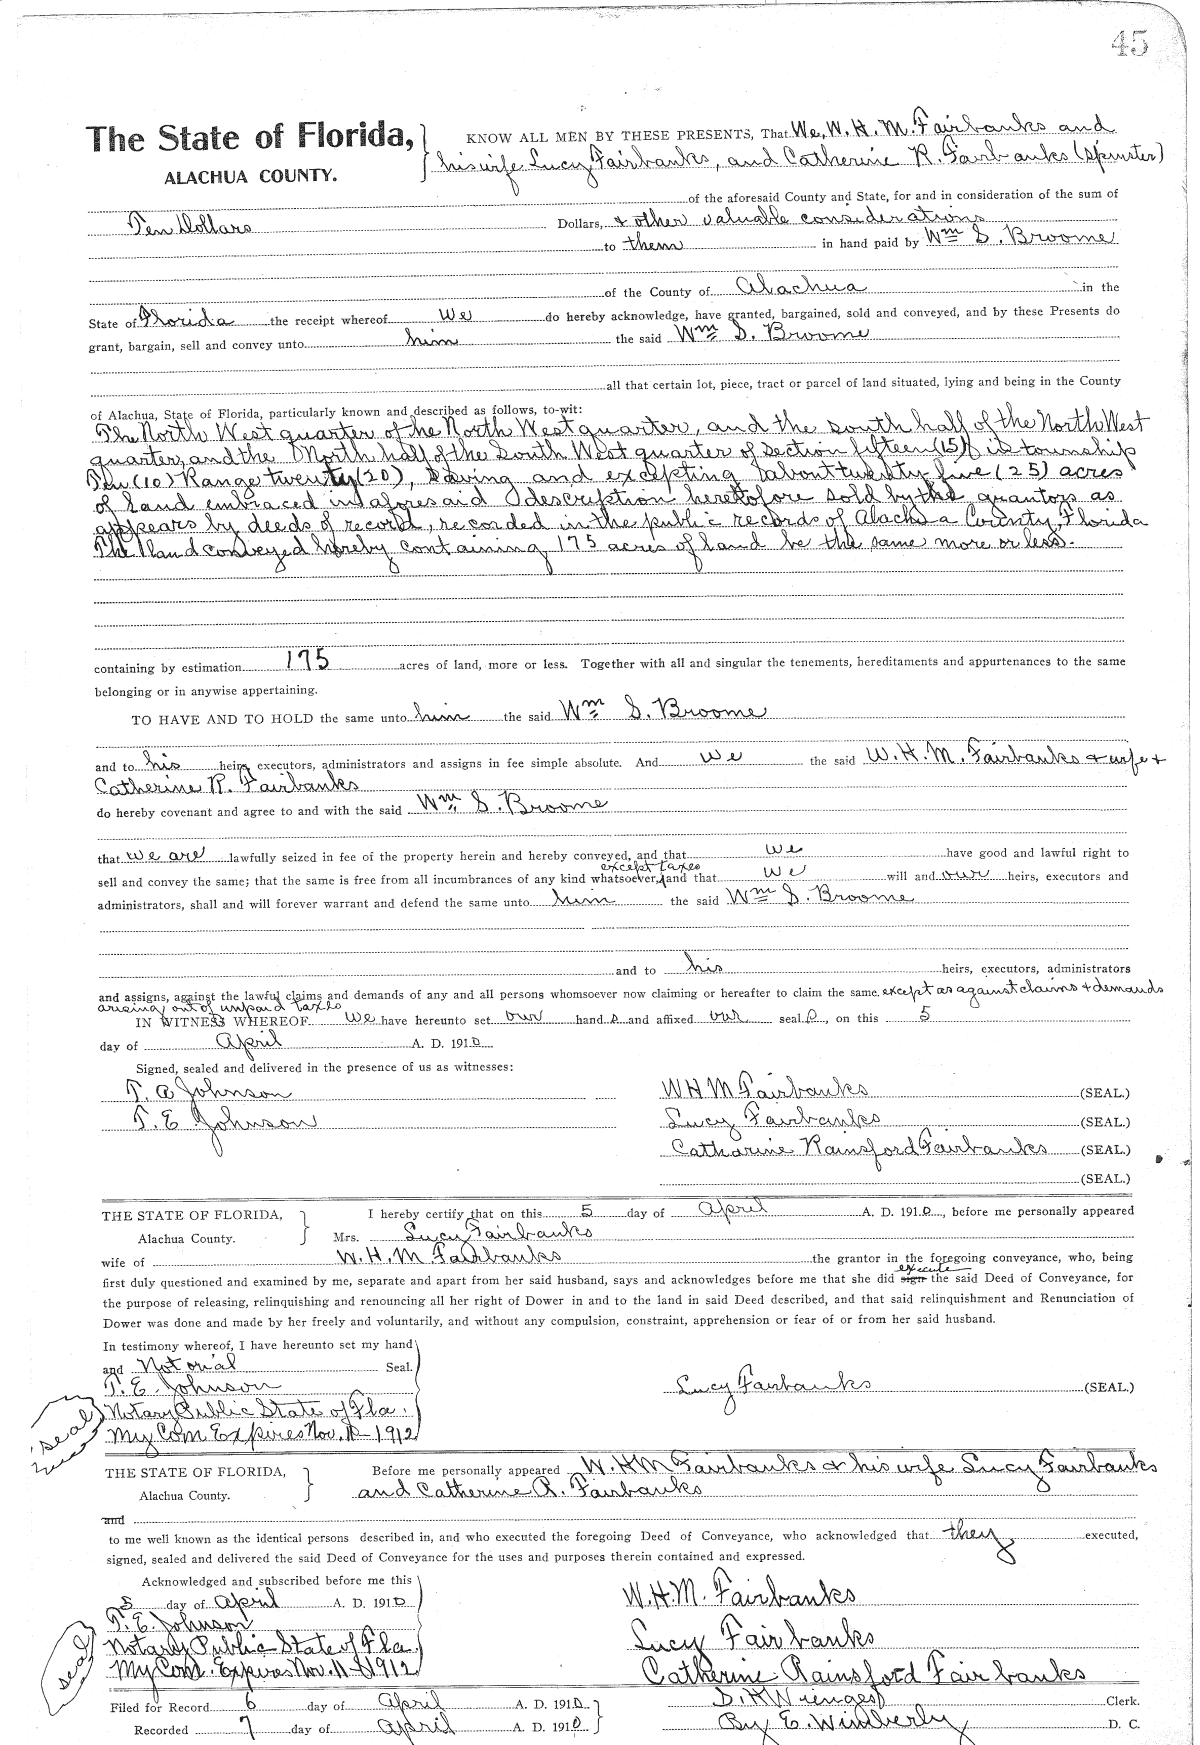 45
The State of Florida, KNOW ALL MEN BY THESE PRESENTS, That We, W. H. M. Fairbanks and
ALACHUA COUNTY. his wife Lucy Fairbanks, and Catherine R. Fairbanks (spinster)
of the aforesaid County and State, for and in consideration of the sum of
Ten Dollars Dollars, & other valuable considerations
to them in hand paid by Wm S. Broome
of the County of Alachua in the
State of Florida the receipt whereof we do hereby acknowledge, have granted, bargained, sold and conveyed, and by these Presents do
grant, bargain, sell and convey unto him the said Wm S. Broome
all that certain lot, piece, tract or parcel of land situated, lying and being in the County
of Alachua, State of Florida, particularly known and described as follows, to-wit:
The North West quarter of the North West quarter, and the south half of the North West
quarter, and the North half of the South West quarter of section fifteen (15) in township
Ten (10) Range twenty (20), saving and excepting about twenty five (25) acres
of land embraced in aforesaid description heretofore sold by the grantors as
appears by deeds of record, recorded in the public records of Alachua County, Florida
The land conveyed hereby containing 175 acres of land be the same more or less.
containing by estimation 175 acres of land, more or less. Together with all and singular the tenements, hereditaments and appurtenances to the same
belonging or in anywise appertaining.
TO HAVE AND TO HOLD the same unto him the said Wm S. Broome
and to his heirs, executors, administrators and assigns in fee simple absolute. And we the said W. H. M. Fairbanks & wife &
Catherine R. Fairbanks
do hereby covenant and agree to and with the said Wm S. Broome
that we are lawfully seized in fee of the property herein and hereby conveyed, and that we have good and lawful right to
except taxes
sell and convey the same; that the same is free from all incumbrances of any kind whatsoever, and that we will and our heirs, executors and
administrators, shall and will forever warrant and defend the same unto him the said Wm S. Broome
and to his heirs, executors, administrators
and assigns, against the lawful claims and demands of any and all persons whomsoever now claiming or hereafter to claim the same. except as against claims & demands
arising out of unpaid taxes
IN WITNESS WHEREOF we have hereunto set our hand s and affixed our seal s, on this 5
day of April A. D. 1910
Signed, sealed and delivered in the presence of us as witnesses:
T. A Johnson WHM Fairbanks (SEAL.)
T. E Johnson Lucy Fairbanks (SEAL.)
Catharine Rainsford Fairbanks (SEAL.)
(SEAL.)
THE STATE OF FLORIDA, I hereby certify that on this 5 day of April A. D. 1910, before me personally appeared
Alachua County. Mrs. Lucy Fairbanks
wife of W. H. M. Fairbanks the grantor in the foregoing conveyance, who, being
execute
first duly questioned and examined by me, separate and apart from her said husband, says and acknowledges before me that she did sign the said Deed of Conveyance, for
the purpose of releasing, relinquishing and renouncing all her right of Dower in and to the land in said Deed described, and that said relinquishment and Renunciation of
Dower was done and made by her freely and voluntarily, and without any compulsion, constraint, apprehension or fear of or from her said husband.
In testimony whereof, I have hereunto set my hand
and Notorial Seal.
T. E. Johnson Lucy Fairbanks (SEAL.)
seal Notary Public State of Fla.
My Com Expires Nov. 1912
THE STATE OF FLORIDA, Before me personally appeared W. H M Fairbanks & his wife Lucy Fairbanks
Alachua County. and Catherine R. Fairbanks
and
to me well known as the identical persons described in, and who executed the foregoing Deed of Conveyance, who acknowledged that they executed,
signed, sealed and delivered the said Deed of Conveyance for the uses and purposes therein contained and expressed.
Acknowledged and subscribed before me this
5 day of April A. D. 1910 W. H. M. Fairbanks
T. E. Johnson
seal Notary Public State of Fla. Lucy Fairbanks
My Com. Expires Nov. 11 1912 Catherine Rainsford Fairbanks
Filed for Record 6 day of April A. D. 1910 Clerk.
Recorded 7 day of April A. D. 1910 By E. Wimberly D. C.